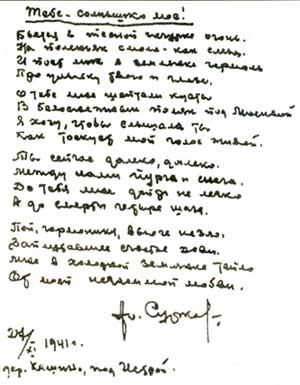 Тебе — солнышко мое!
Бьется в тесной печурке огонь.
На поленьях смола — как слеза.
И поет мне в землянке гармонь
Про улыбку твою и глаза.
О тебе мне шептали кусты
В белоснежных полях под Москвой
Я хочу, чтобы слышала ты
Как тоскует мой голос живой.
Ты сейчас далеко, далеко.
Между нами пурга и снега.
До тебя мне дойти не легко
А до смерти четыре шага.
Пой, гармоника, вьюге назло.
Заплутавшее счастье зови.
Мне в холодной землянке тепло
От моей негасимой любви.
Ал. Сурков
27/XI 1941 г.
дер. Кашино, под Истрой.